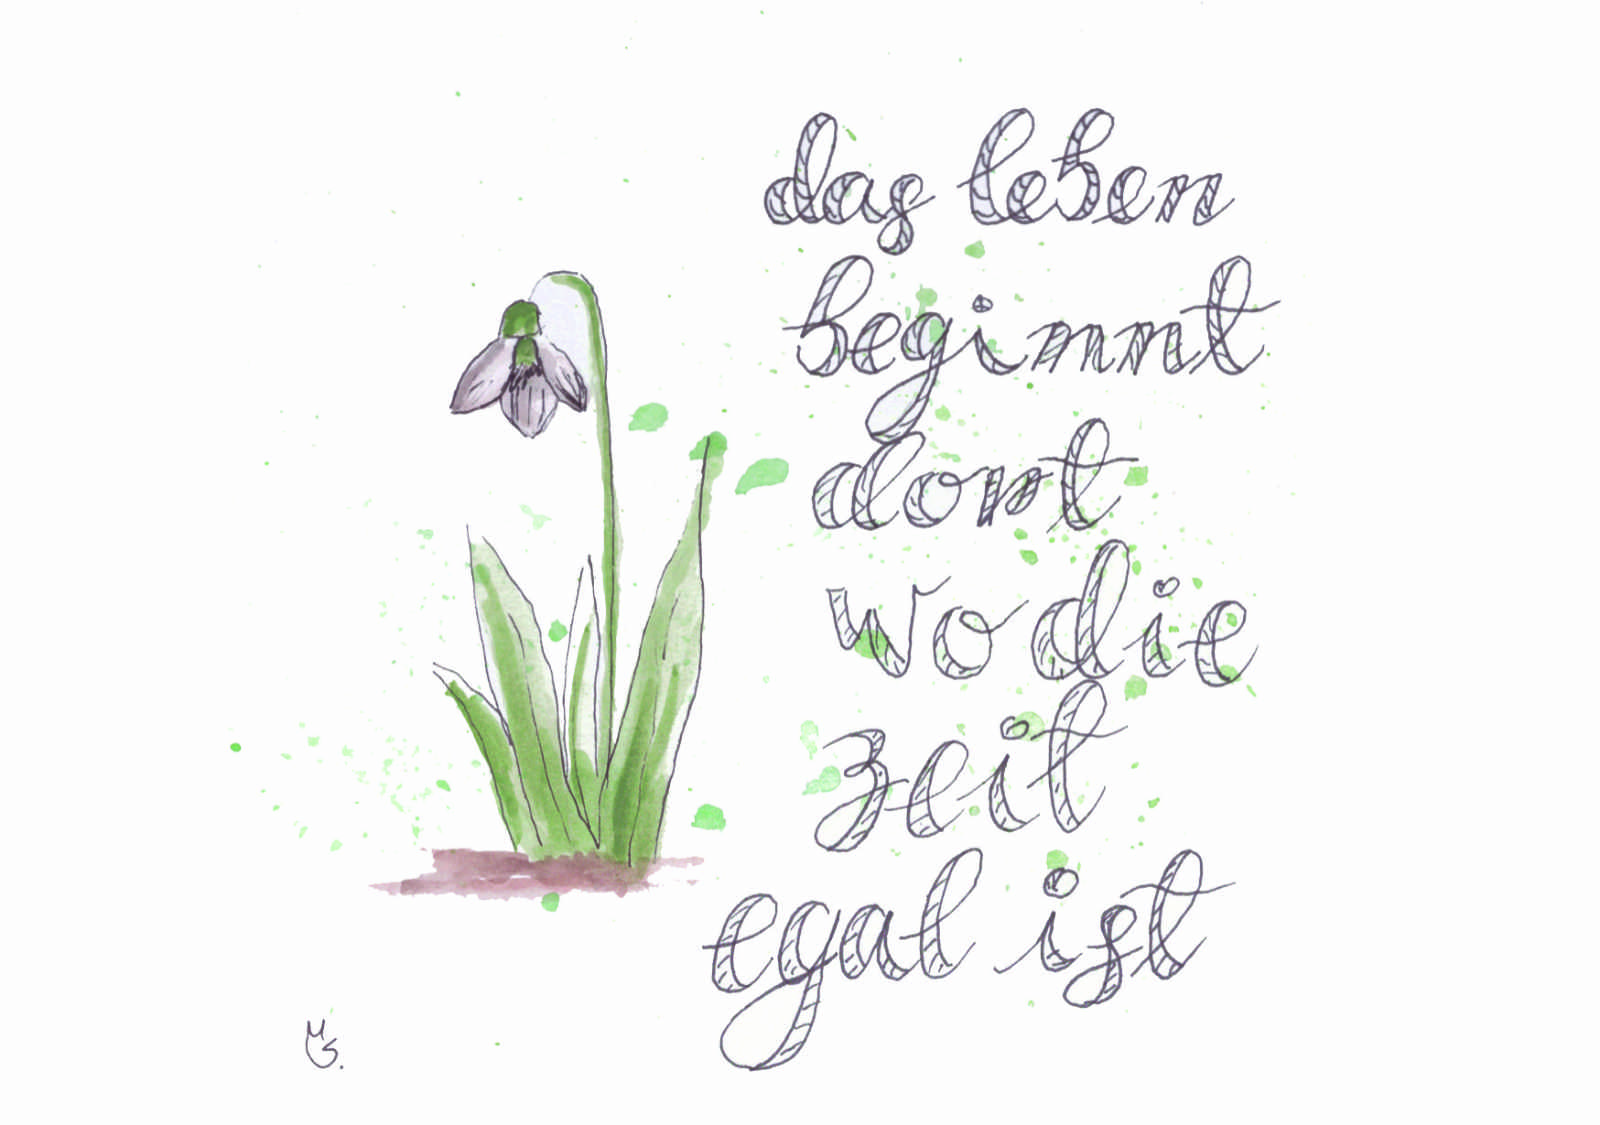 das leben
beginnt
dort
wo die
zeit
egal ist